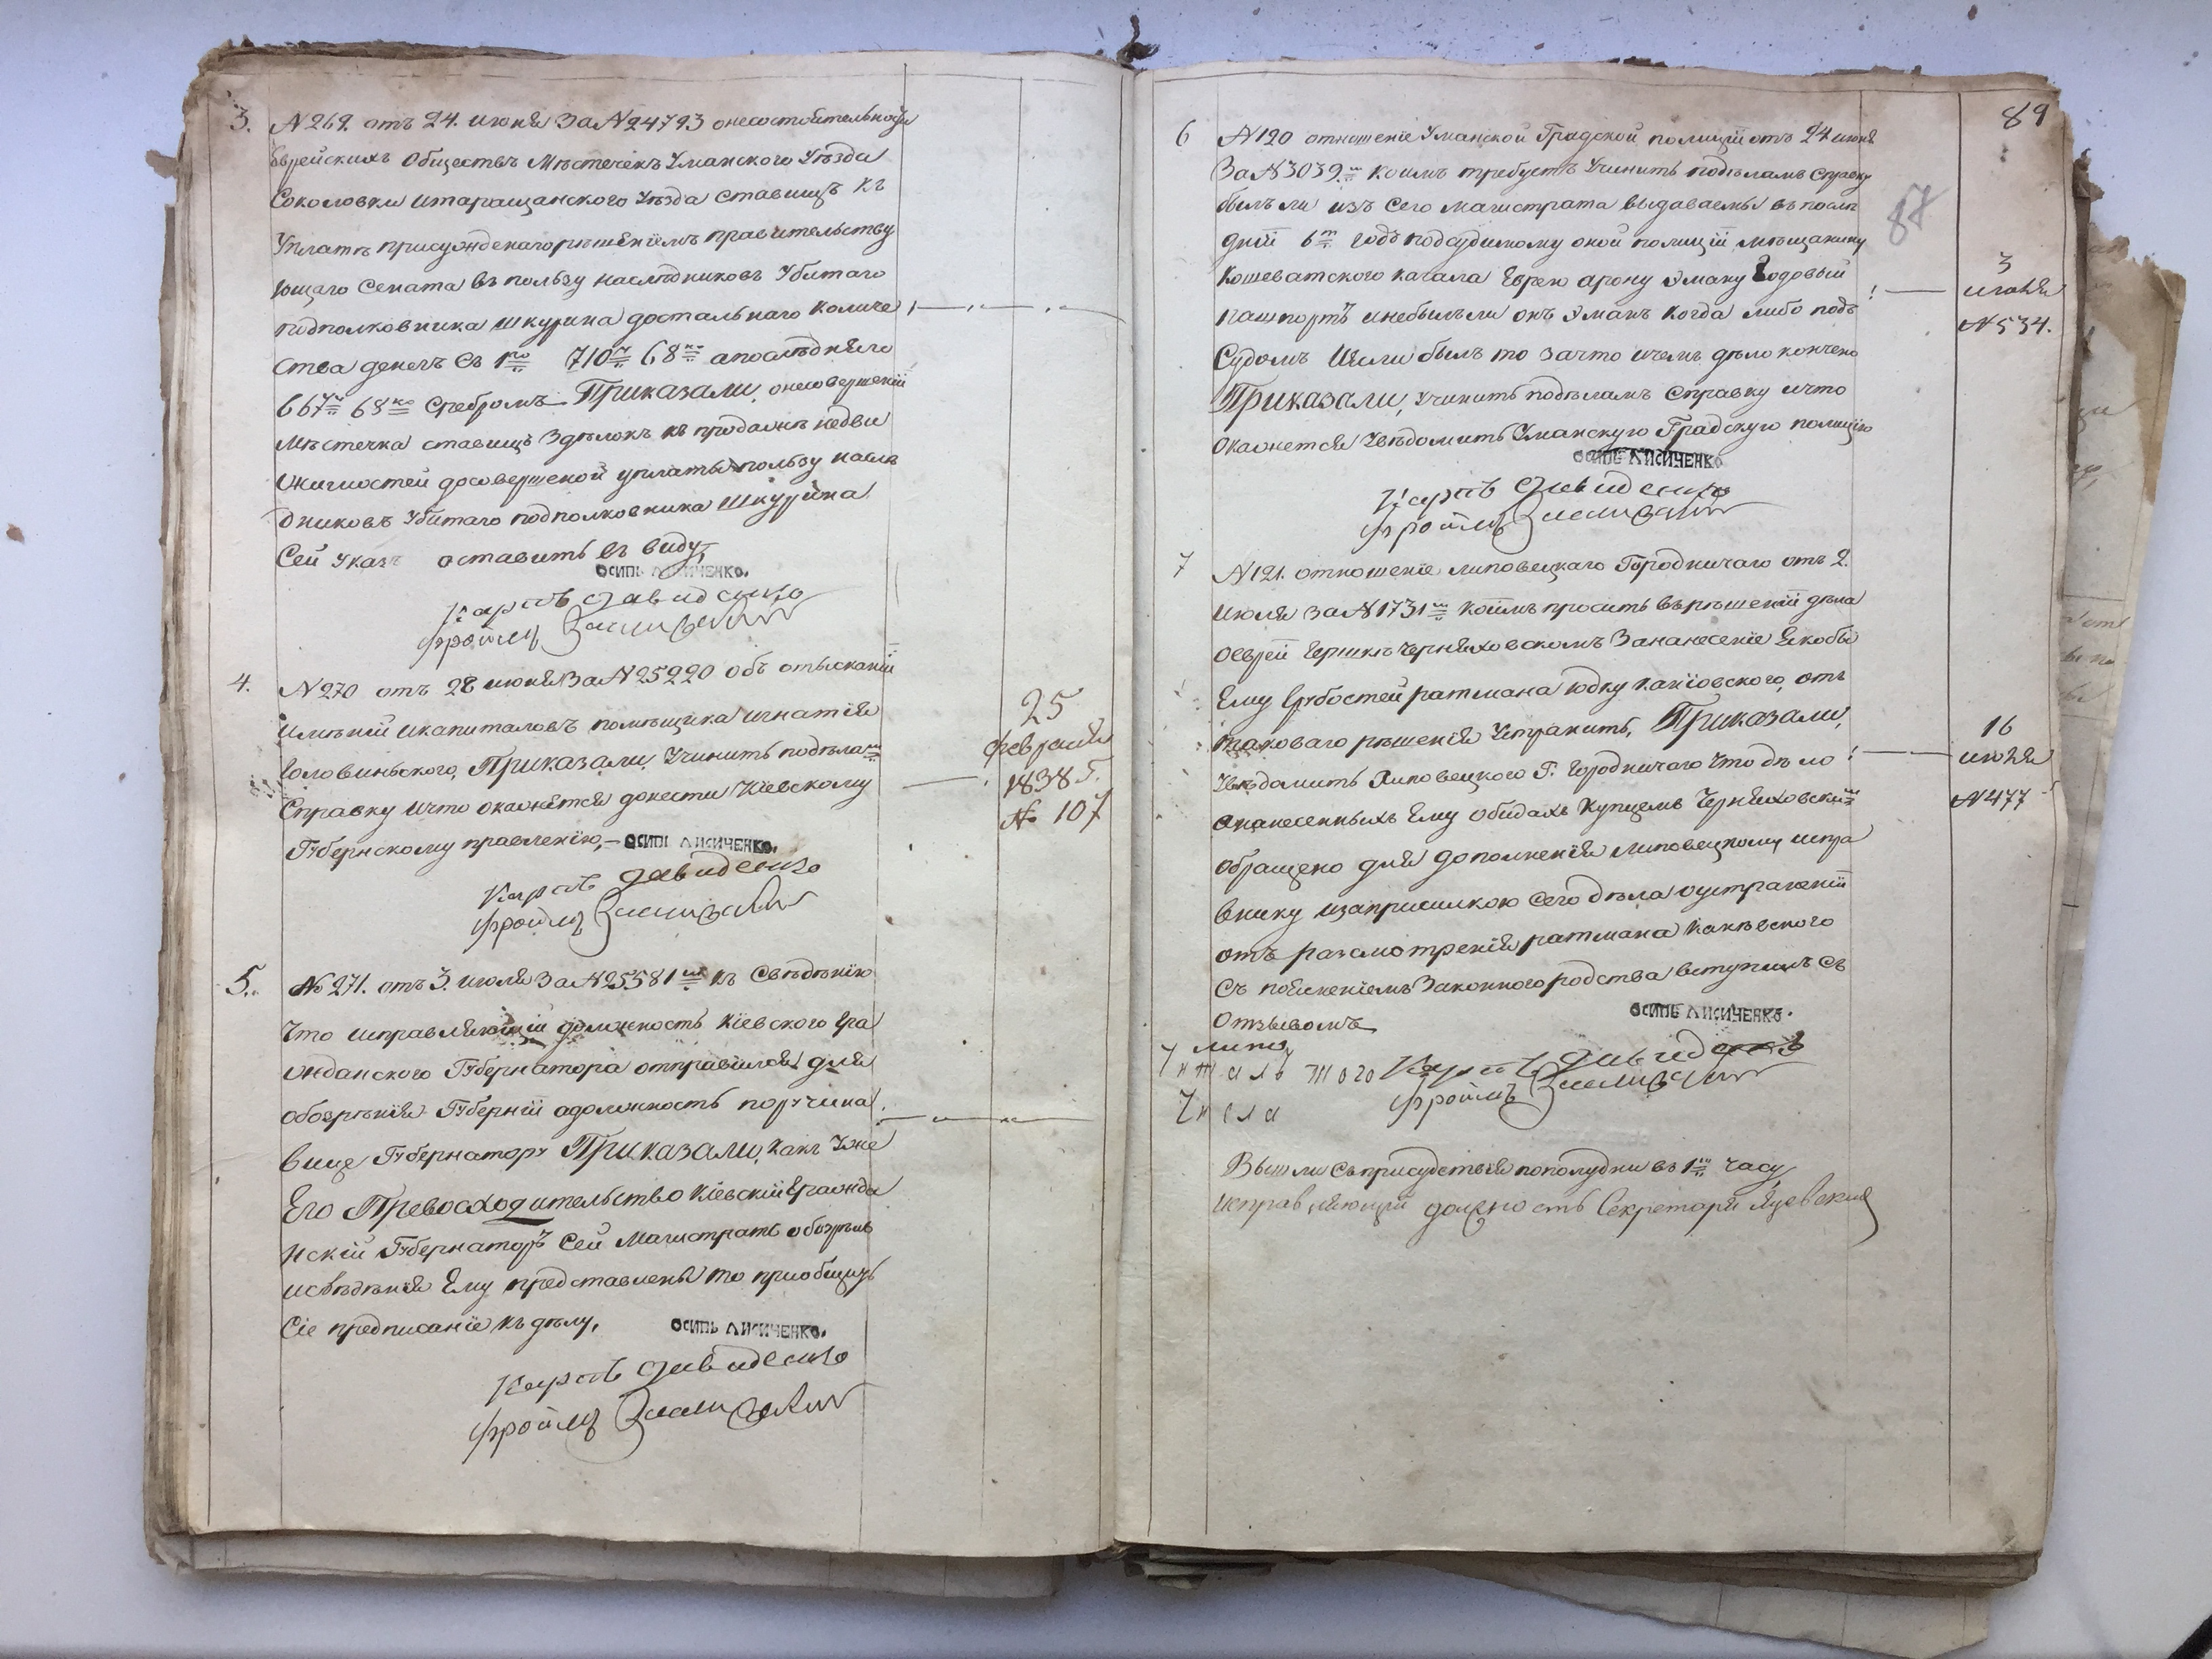 3. №269. отъ 24. июня За №24793 онесостоятельности
Еврейскихъ Обществъ Мѣстечекъ Уманского Уѣзда
Соколовки итаращанского Уѣзда ставищъ къ
Уплатѣ присужденаго рѣшенїемъ правительству
ющаго Сената въ пользу наслѣдниковъ Убитаго
подполковника шкурина достальнаго количе
ства денегъ съ 1го 710 68 апослѣдняго
667 68 Сребромъ Приказали, онесовершенїи
Мѣстечка ставищъ Здѣлокъ къ продажѣ недви
жимостей досовершеной уплаты пользу наслѣ
дниковъ Убитаго подполковника шкурина
Сей Указъ оставить въ виду,
осипъ лисиченко.
Карпъ давиденко
фроимъ
4. №270 отъ 28 июня За №25220 объ отысканїи
имѣнїй икапиталовъ помѣщика игнатїя
Головинского, Приказали, Учинить подѣламъ
Справку ичто окажется донести Кїевскому
Губернскому правленїю,— осипъ лисиченко.
Карпъ давиденко
фроимъ
25
февраля
1838.
№ 107
5. №271. отъ 3. июля За №25581 къ Свѣдѣнїю
Что исправляющїй должность Кїевского Гра
жданского Губернатора отправился для
обозрѣнїя Губернїи адолжность поручилъ
вице Губернатору Приказали, какъ Уже
Его Превосходительство Кїевскїй Гражда
нскїй Губернаторъ Сей Магистратъ обозрѣлъ
исвѣдѣнїя Ему представлены то приобщить
Сїе предписанїе къ дѣлу,
осипъ лисиченко.
Карпъ давиденко
фроимъ
89
87
6 №120 отношенїе Уманской Градской полицїи отъ 24 июня
За №3039 коимъ требуетъ Учинить подѣламъ Справку
былъ ли изъ Сего Магистрата выдаваемъ въ послѣ
днїй 6 Годъ подсудимому оной полицїи мѣщанину
Кошеватского кагала Еврею арону Уману Годовый
пашпортъ инебылъ ли онъ Уманъ когда либо подъ
Судомъ Иели былъ то зачто ичемъ дѣло кончено
Приказали, Учинить подѣламъ Справку ичто
окажется Увѣдомить Уманскую Градскую полицїю
осипъ лисиченко
Карпъ давиденко
фроимъ
3
июля
№534.
7 №121. отношенїе липовецкаго Городничаго отъ 2.
июля за №1731 коимъ проситъ върѣшенїи дѣла
оеврей Гершкѣ Черняховскомъ Зананесенїе Якобы
Ему Грубостей ратмана юдку канїовского, отъ
таковаго рѣшенїя Устранить, Приказали,
Увѣдомить Липовецкого Г. Городничаго Что дѣло
онанесенныхъ Ему обидахъ Купцемъ Черняховскимъ
обращено для дополненїя липовецкому испра
внику изаприсилкою Сего дѣла оустраненїи
отъ разсмотренїя ратмана Канѣвского
Съ поясненїемъ Законного родства вступилъ Съ
Отзывомъ
осипъ лисиченко.
Карпъ
фроимъ
16
июля
№477
Читалъ того
Числа
Вышли съ присудствїя пополудни въ 1 часу
исправляющїй должность Секретаря